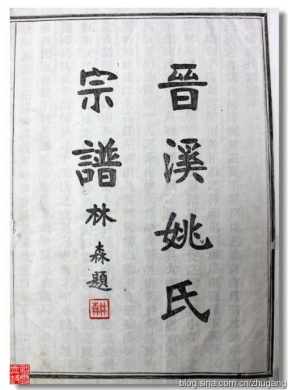 晉溪姚氏
宗譜
林森題
blog.sina.com.cn/zhugang